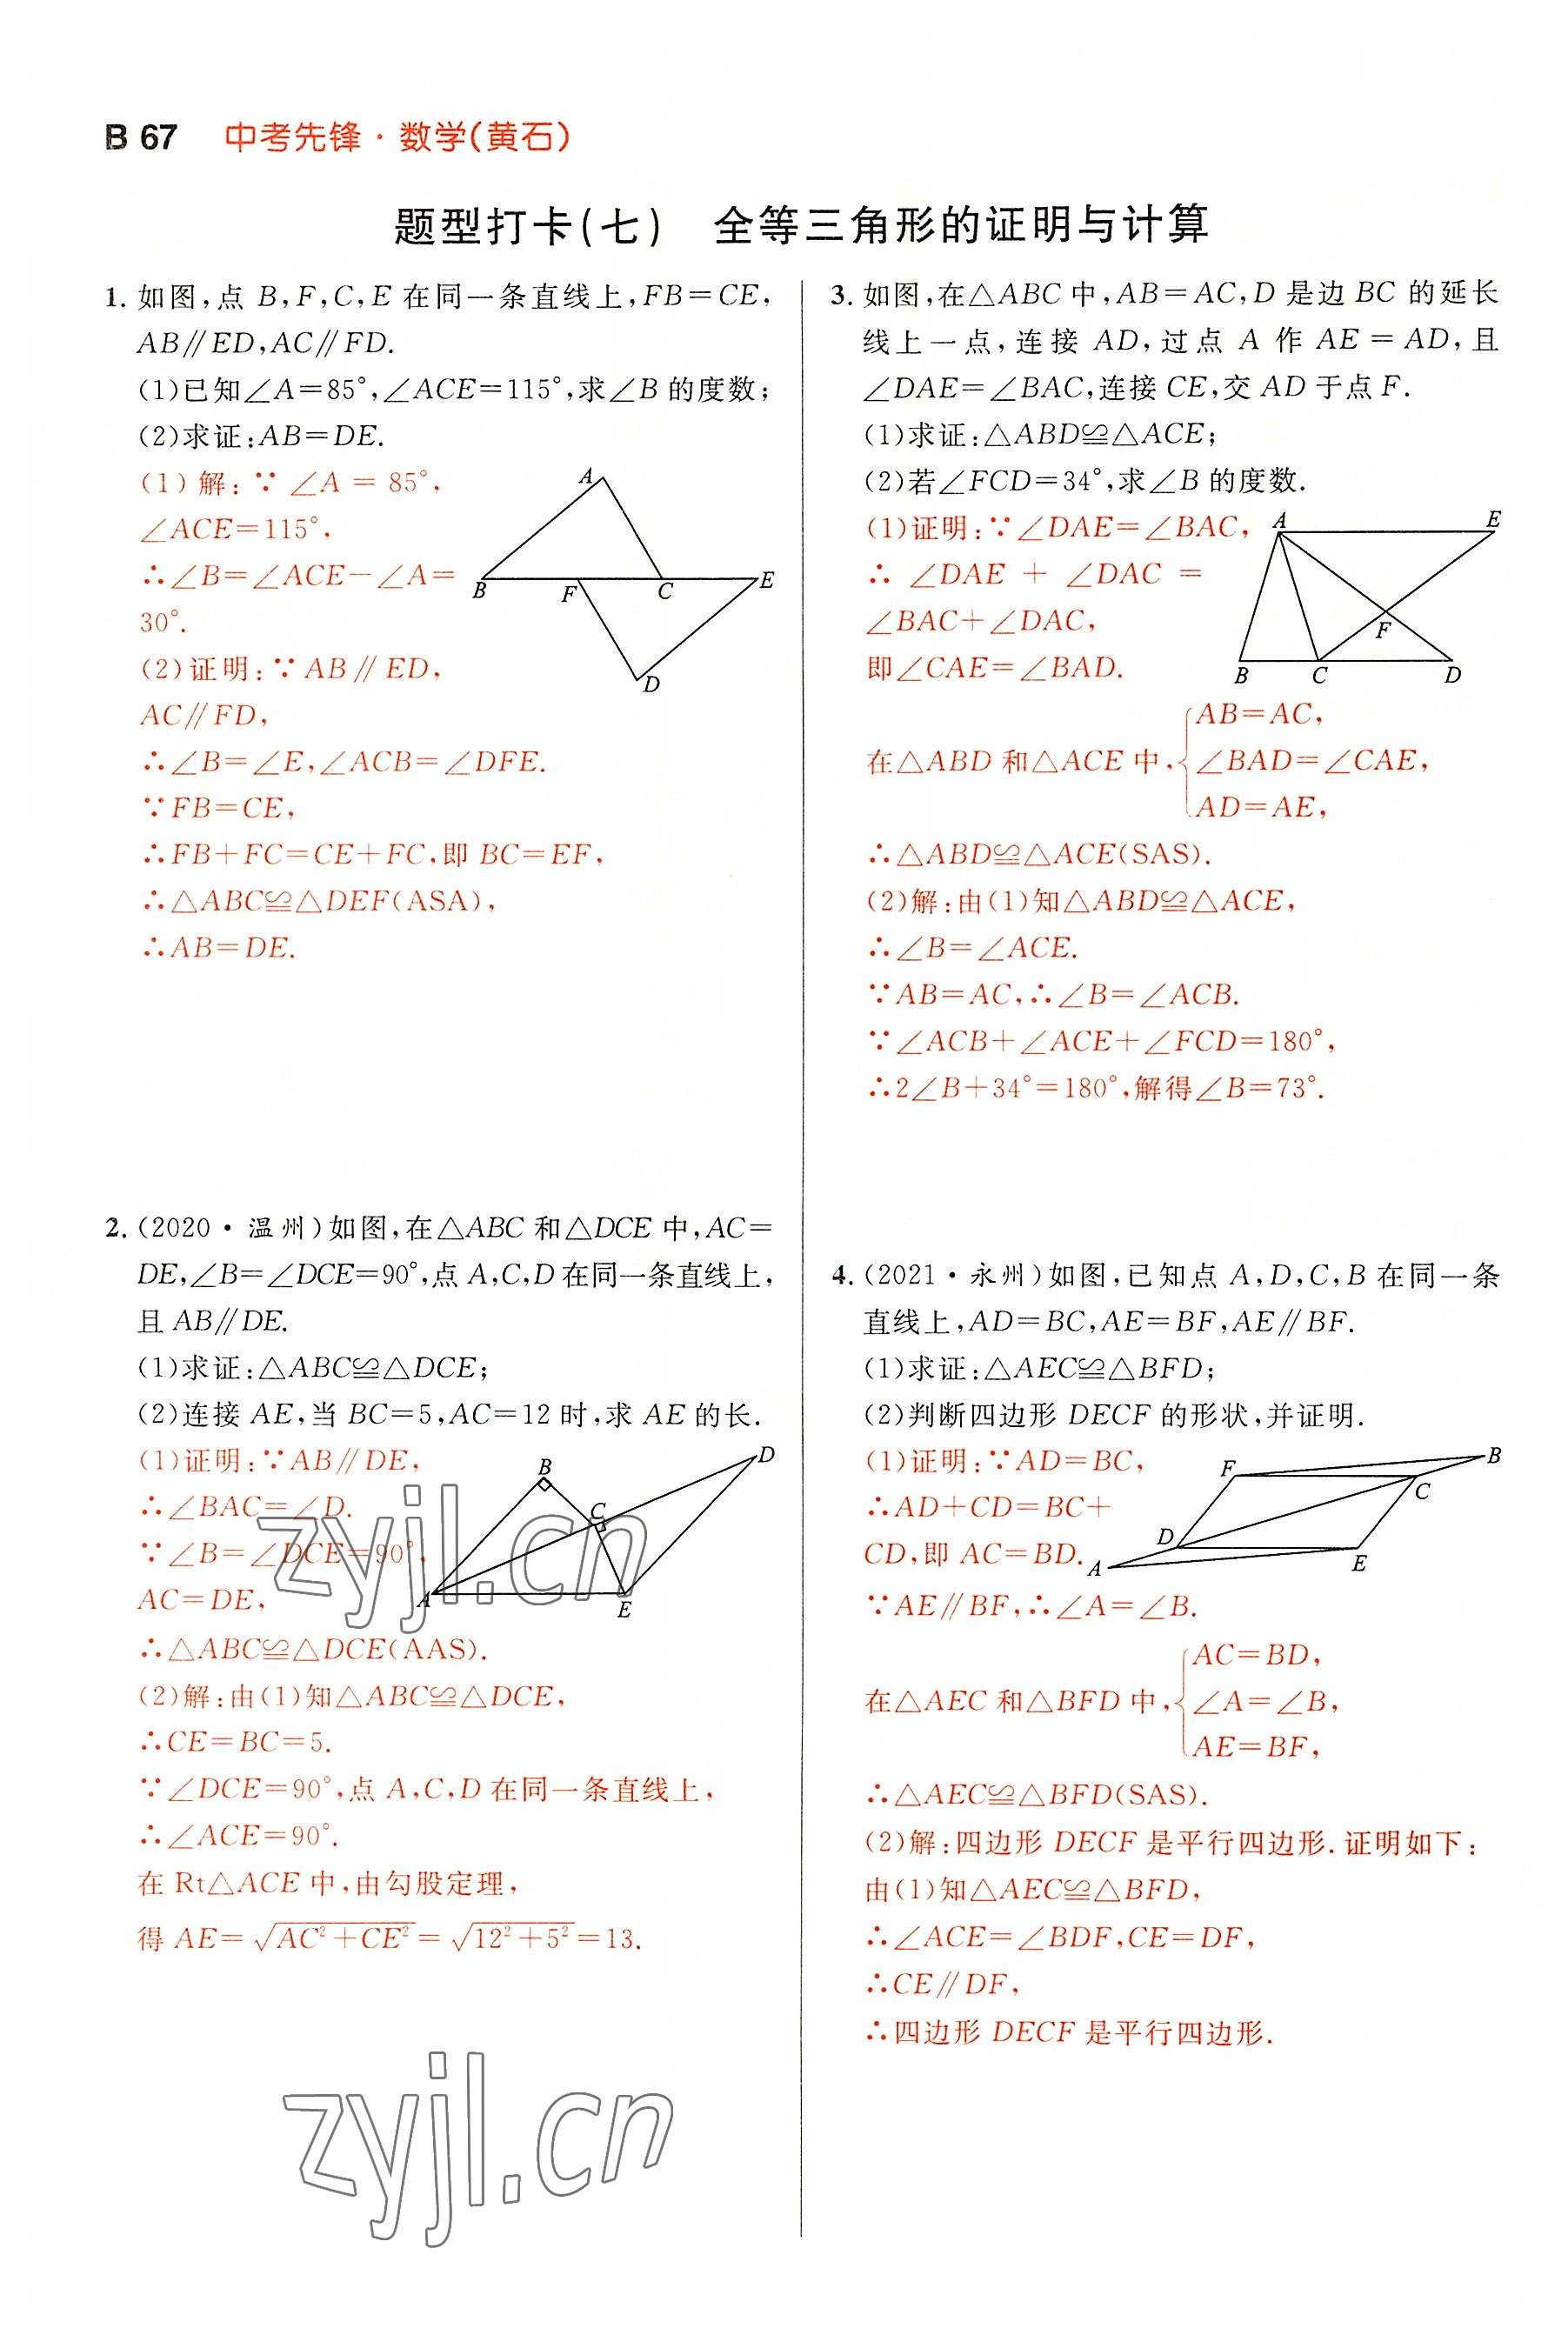 B 67 中考先锋·数学(黄石)
题型打卡(七) 全等三角形的证明与计算
1. 如图,点 B,F,C,E 在同一条直线上,FB=CE,
AB∥ED,AC∥FD.
(1)已知∠A=85°,∠ACE=115°,求∠B 的度数;
(2)求证:AB=DE.
(1)解:∵∠A=85°,
∠ACE=115°,
∴∠B=∠ACE-∠A=
30°.
(2)证明:∵AB∥ED,
AC∥FD,
∴∠B=∠E,∠ACB=∠DFE.
∵FB=CE,
∴FB+FC=CE+FC,即 BC=EF,
∴△ABC≌△DEF(ASA),
∴AB=DE.
A
B
F
C
E
D
2. (2020·温州)如图,在△ABC 和△DCE 中,AC=
DE,∠B=∠DCE=90°,点 A,C,D 在同一条直线上,
且 AB∥DE.
(1)求证:△ABC≌△DCE;
(2)连接 AE,当 BC=5,AC=12 时,求 AE 的长.
(1)证明:∵AB∥DE,
∴∠BAC=∠D.
∵∠B=∠DCE=90°,
AC=DE,
∴△ABC≌△DCE(AAS).
(2)解:由(1)知△ABC≌△DCE,
∴CE=BC=5.
∵∠DCE=90°,点 A,C,D 在同一条直线上,
∴∠ACE=90°.
在 Rt△ACE 中,由勾股定理,
得 AE=√(AC²+CE²)=√(12²+5²)=13.
B
D
C
A
E
zyjl.cn
zyjl.cn
3. 如图,在△ABC 中,AB=AC,D 是边 BC 的延长
线上一点,连接 AD,过点 A 作 AE=AD,且
∠DAE=∠BAC,连接 CE,交 AD 于点 F.
(1)求证:△ABD≌△ACE;
(2)若∠FCD=34°,求∠B 的度数.
(1)证明:∵∠DAE=∠BAC,
∴∠DAE+∠DAC=
∠BAC+∠DAC,
即∠CAE=∠BAD.
AB=AC,
在△ABD 和△ACE 中,{∠BAD=∠CAE,
AD=AE,
∴△ABD≌△ACE(SAS).
(2)解:由(1)知△ABD≌△ACE,
∴∠B=∠ACE.
∵AB=AC,∴∠B=∠ACB.
∵∠ACB+∠ACE+∠FCD=180°,
∴2∠B+34°=180°,解得∠B=73°.
A
E
F
B
C
D
4. (2021·永州)如图,已知点 A,D,C,B 在同一条
直线上,AD=BC,AE=BF,AE∥BF.
(1)求证:△AEC≌△BFD;
(2)判断四边形 DECF 的形状,并证明.
(1)证明:∵AD=BC,
∴AD+CD=BC+
CD,即 AC=BD.
∵AE∥BF,∴∠A=∠B.
AC=BD,
在△AEC 和△BFD 中,{∠A=∠B,
AE=BF,
∴△AEC≌△BFD(SAS).
(2)解:四边形 DECF 是平行四边形.证明如下:
由(1)知△AEC≌△BFD,
∴∠ACE=∠BDF,CE=DF,
∴CE∥DF,
∴四边形 DECF 是平行四边形.
F
B
C
D
A
E